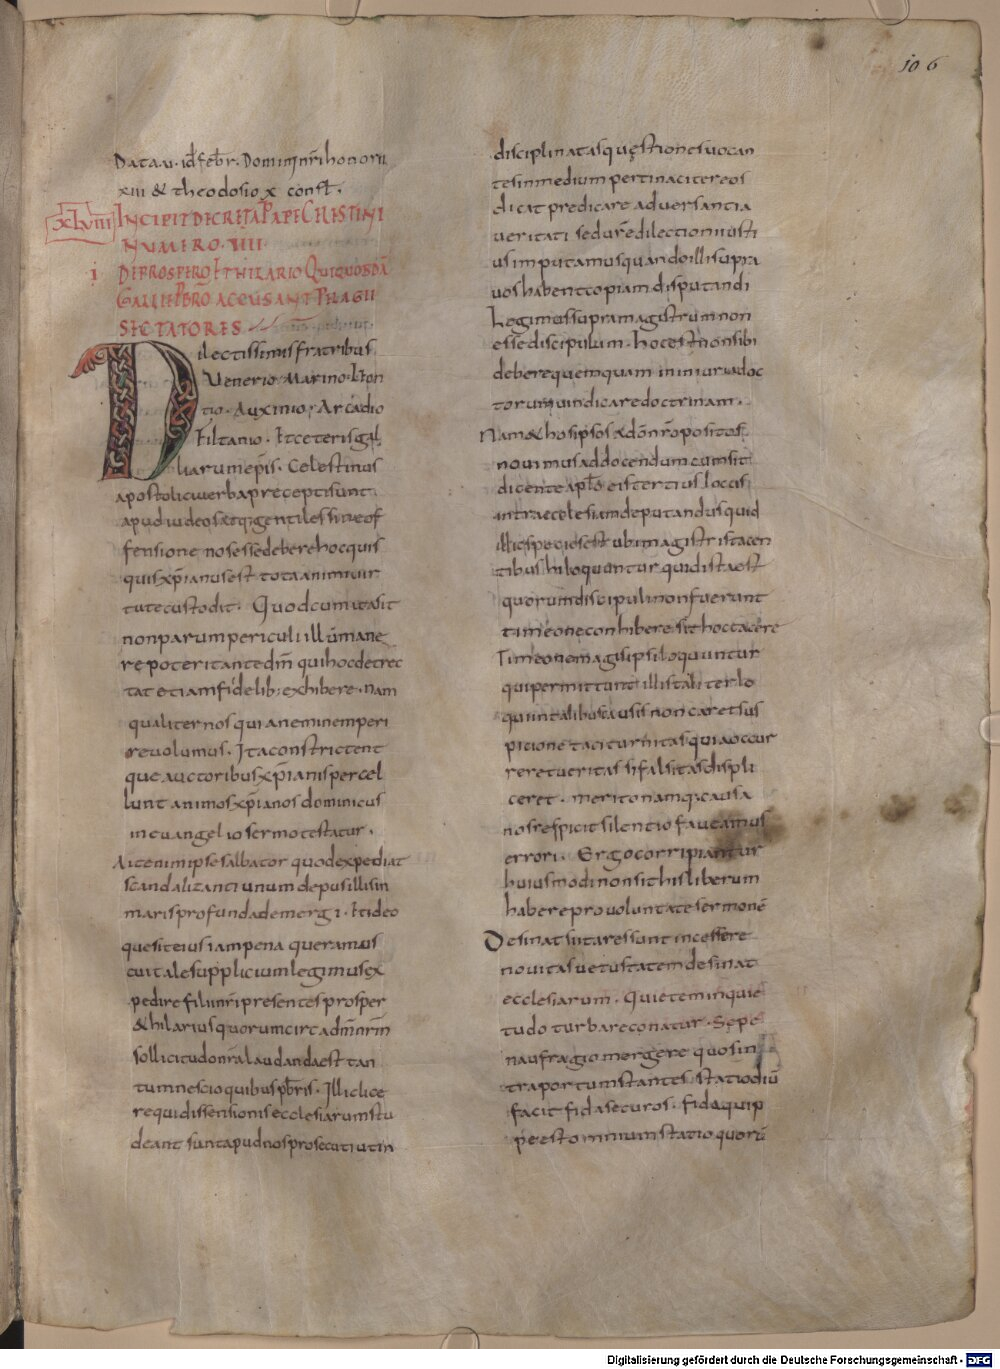 106
Data·u·id febr·Dominı nrı honorii
xiii & theodosio x consl·
XLVIII INCIPIT DECRETA PAPE CELESTINI
NUMERO·VIIII
i DE PROSPERO ET HILARIO QUI QUOSDĀ
GALLIE PBRŌ ACCUSANT PELAGII
SECTATORES
Dilectissimis fratribus
Uenerio·Marino·leon
tio·Auxinio·Arcadio
Filtanio·Et ceteris gal
liarum epis·Celestinus
apostolici uerba precepti sunt
apud iudeos atq; gentiles sine of
fensione nos esse debere hoc quis
quis xpianus est tota animi uir
tute custodit·Quod cum ita sit
non parum periculi illum mane
re poterit ante dm qui hoc detrec
tat etiam fidelib; exhibere·nam
qualiter nos qui a neminem peri
re uolumus·Ita constrictent
que auctoribus xpianis percel
lunt animos xpianos dominicus
in euangelio sermo testatur·
Ait enim ipse salbator quod expediat
scandalizanti unum de pusillis in
maris profunda demergi·Et ideo
que sit eius iam pena queramus
cui tale supplicium legimus ex
pedire filii nri presentes prosper
& hilarius quorum circa dm nrm
sollicitudo nra laudanda est tan
tum nescio quibus pbris·Illic lice
re qui dissensionis ecclesiarum stu
deant sunt apud nos prosecuti ut in
disciplinatas questiones uocan
tes in medium pertinaciter eos
dicat predicare aduersantia
ueritati sed ure dilectioni iusti
us imputamus quando illi supra
uos habent copiam disputandi
Legimus supra magistrum non
esse discipulum·hoc est non sibi
debere quemquam in iniuria doc
torum uindicare doctrinam·
Nam & hos ipsos a do nro positos
nouimus ad docendum cum sit
dicente aplo eis tertius locus
intra ecclesiam deputandus quid
illic spei est ubi magistris tacen
tibus hi loquuntur qui dist aest
quorum discipuli non fuerunt
timeo ne conhibere sit hoc tacere
Timeo ne magis ipsi loquuntur
qui permittunt illis taliter lo
qui in talibus causis non caret sus
picione taciturnitas quia occur
reret ueritas si falsitas displi
ceret·merito namq; causa
nos respicit si lentio faueamus
errori·Ergo corripiantur
huiusmodi non sit his liberum
habere pro uoluntate sermonē
Desinat si ita res sunt incessere
nouitas uetustatem desinat
ecclesiarum·Quietem inquie
tudo turbare conatur·Sepe
naufragio mergere quos in
tra portum stantes statio diū
facit fida securos·fida quip
pe est omnium statio quorū
Digitalisierung gefördert durch die Deutsche Forschungsgemeinschaft - DFG